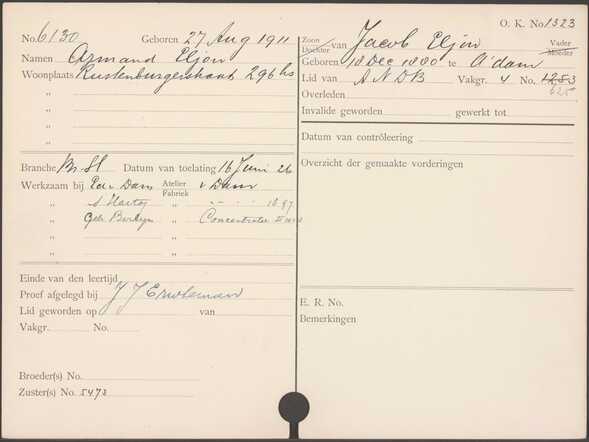 O. K. No. 1323
No. 6130 Geboren 27 Aug 1911
Namen Armand Eljon
Woonplaats Rustenburgerstraat 296 hs
"
"
"
Zoon Dochter van Jacob Eljon Vader Moeder
Geboren 18 Dec 1880 te A'dam
Lid van ANDB Vakgr. 4 No. 1253
625
Overleden
Invalide geworden gewerkt tot
Datum van contrôleering
Overzicht der gemaakte vorderingen
Branche Br. Sl Datum van toelating 16 Juni 26
Werkzaam bij P. v Dam Atelier Fabriek v Dam
" S Hartog " 1897
" Gebr "
" "
" "
Einde van den leertijd
Proef afgelegd bij J J
Lid geworden op van
Vakgr. No.
Broeder(s) No.
Zuster(s) No. 5473
E. R. No.
Bemerkingen